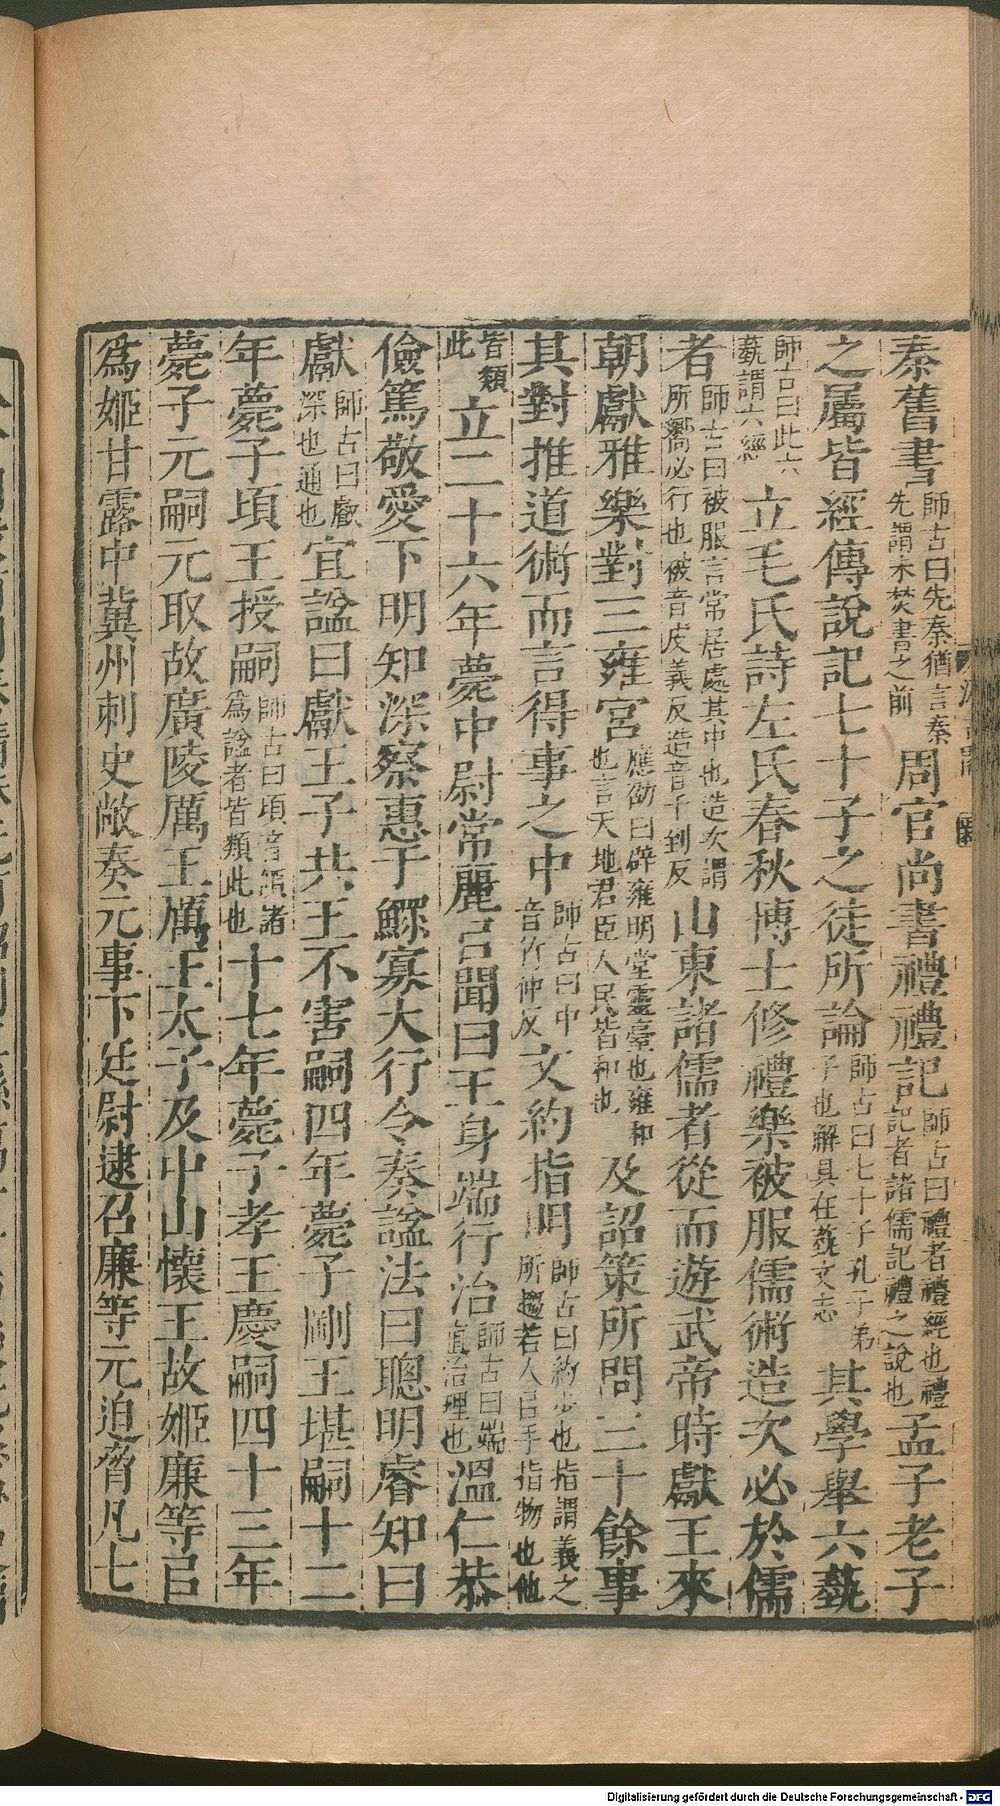 秦舊書師古曰先秦猶言秦先謂未焚書之前周官尚書禮禮記師古曰禮者禮經也禮記者諸儒記禮之說也孟子老子
之屬皆經傳說記七十子之徒所論師古曰七十子孔子弟子也解具在蓺文志其學舉六蓺
師古曰此六蓺謂六經立毛氏詩左氏春秋博士修禮樂被服儒術造次必於儒
者師古曰被服言常居處其中也造次謂所嚮必行也被音皮義反造音千到反山東諸儒者從而遊武帝時獻王來
朝獻雅樂對三雍宮應劭曰辟雍明堂靈臺也雍和也言天地君臣人民皆和也及詔策所問三十餘事
其對推道術而言得事之中師古曰中音竹仲反文約指明師古曰約少也指謂義之所趨若人㠯手指物也他
皆類此立二十六年薨中尉常麗㠯聞曰王身端行治師古曰端直治理也溫仁恭
儉篤敬愛下明知深察惠于鰥寡大行令奏諡法曰聰明睿知曰
獻師古曰叡深也通也宜諡曰獻王子共王不害嗣四年薨子剛王堪嗣十二
年薨子頃王授嗣師古曰頃音傾諸為諡者皆類此也十七年薨子孝王慶嗣四十三年
薨子元嗣元取故廣陵厲王厲王太子及中山懷王故姬廉等㠯
為姬甘露中冀州刺史敞奏元事下廷尉逮召廉等元迫脅凡七
Digitalisierung gefördert durch die Deutsche Forschungsgemeinschaft - DFG